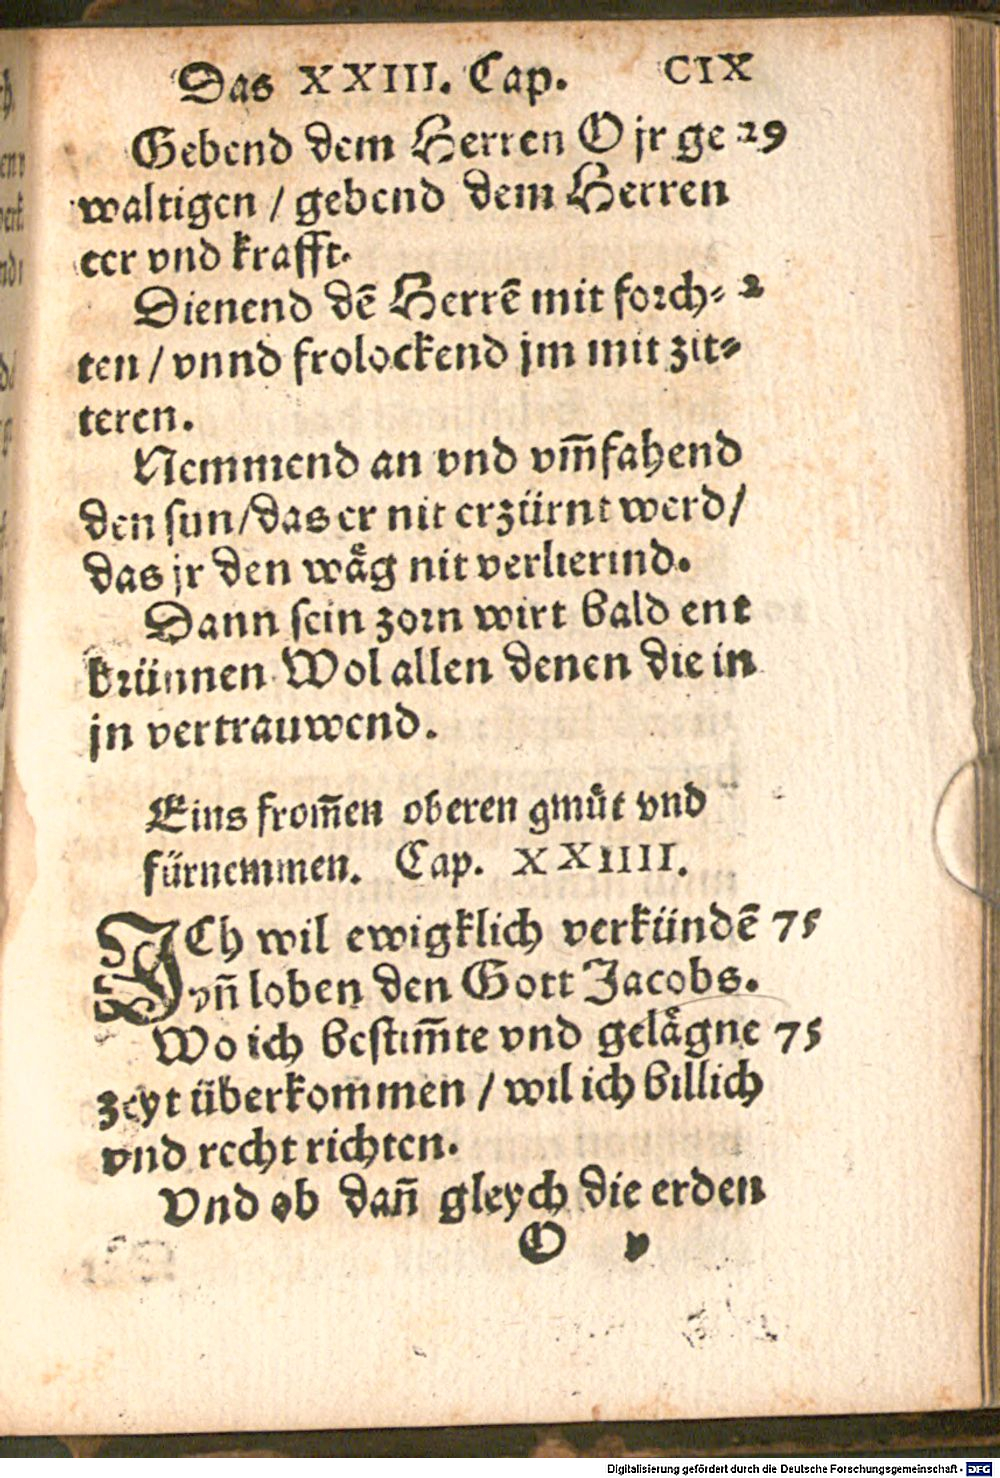 Das XXIII. Cap. CIX
Gebend dem Herren O jr ge 29
waltigen / gebend dem Herren
eer vnd krafft.
Dienend dē Herrē mit forch⸗ 2
ten / vnnd frolockend jm mit zit⸗
teren.
Nemmend an vnd vm̄fahend
den sun/das er nit erzürnt werd/
das jr den wåg nit verlierind.
Dann sein zorn wirt bald ent
brünnen Wol allen denen die in
jn vertrauwend.
Eins from̄en oberen gmůt vnd
fürnemmen. Cap. XXIIII.
ICh wil ewigklich verkündē 75
vn̄ loben den Gott Jacobs.
Wo ich bestim̄te vnd gelågne 75
zeyt überkommen / wil ich billich
vnd recht richten.
Vnd ob dan̄ gleych die erden
O v
Digitalisierung gefördert durch die Deutsche Forschungsgemeinschaft - DFG